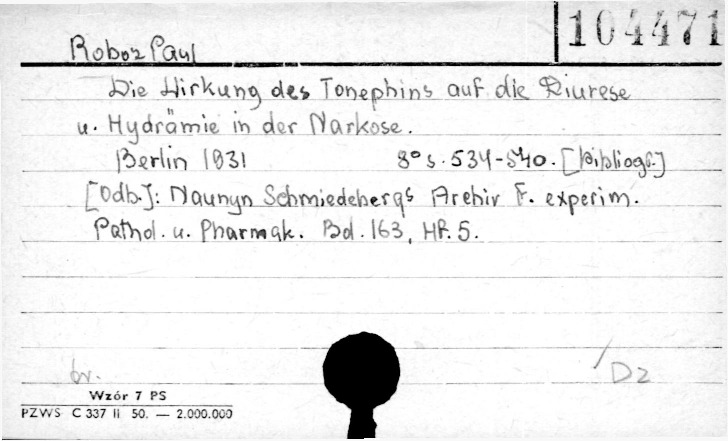 104471
Roboz Paul
Die Wirkung des Tonephins auf die Diurese
u. Hydrämie in der Narkose.
Berlin 1931 8° s. 534-540. [Bibliogr.]
[Odb.]: Naunyn Schmiedebergs Archiv F. experim.
Pathol. u. Pharmak. Bd. 163, Hf. 5.
br. /Dz
Wzór 7 PS
PZWS C 337 II 50. — 2.000.000